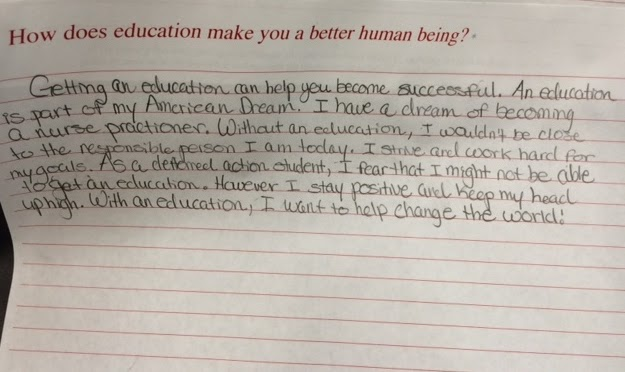 How does education make you a better human being?
Getting an education can help you become successful. An education
is part of my American Dream. I have a dream of becoming
a nurse practioner. Without an education, I wouldn't be close
to the responsible person I am today. I strive and work hard for
my goals. As a deferred action student, I fear that I might not be able
to get an education. However I stay positive and keep my head
up high. With an education, I want to help change the world!